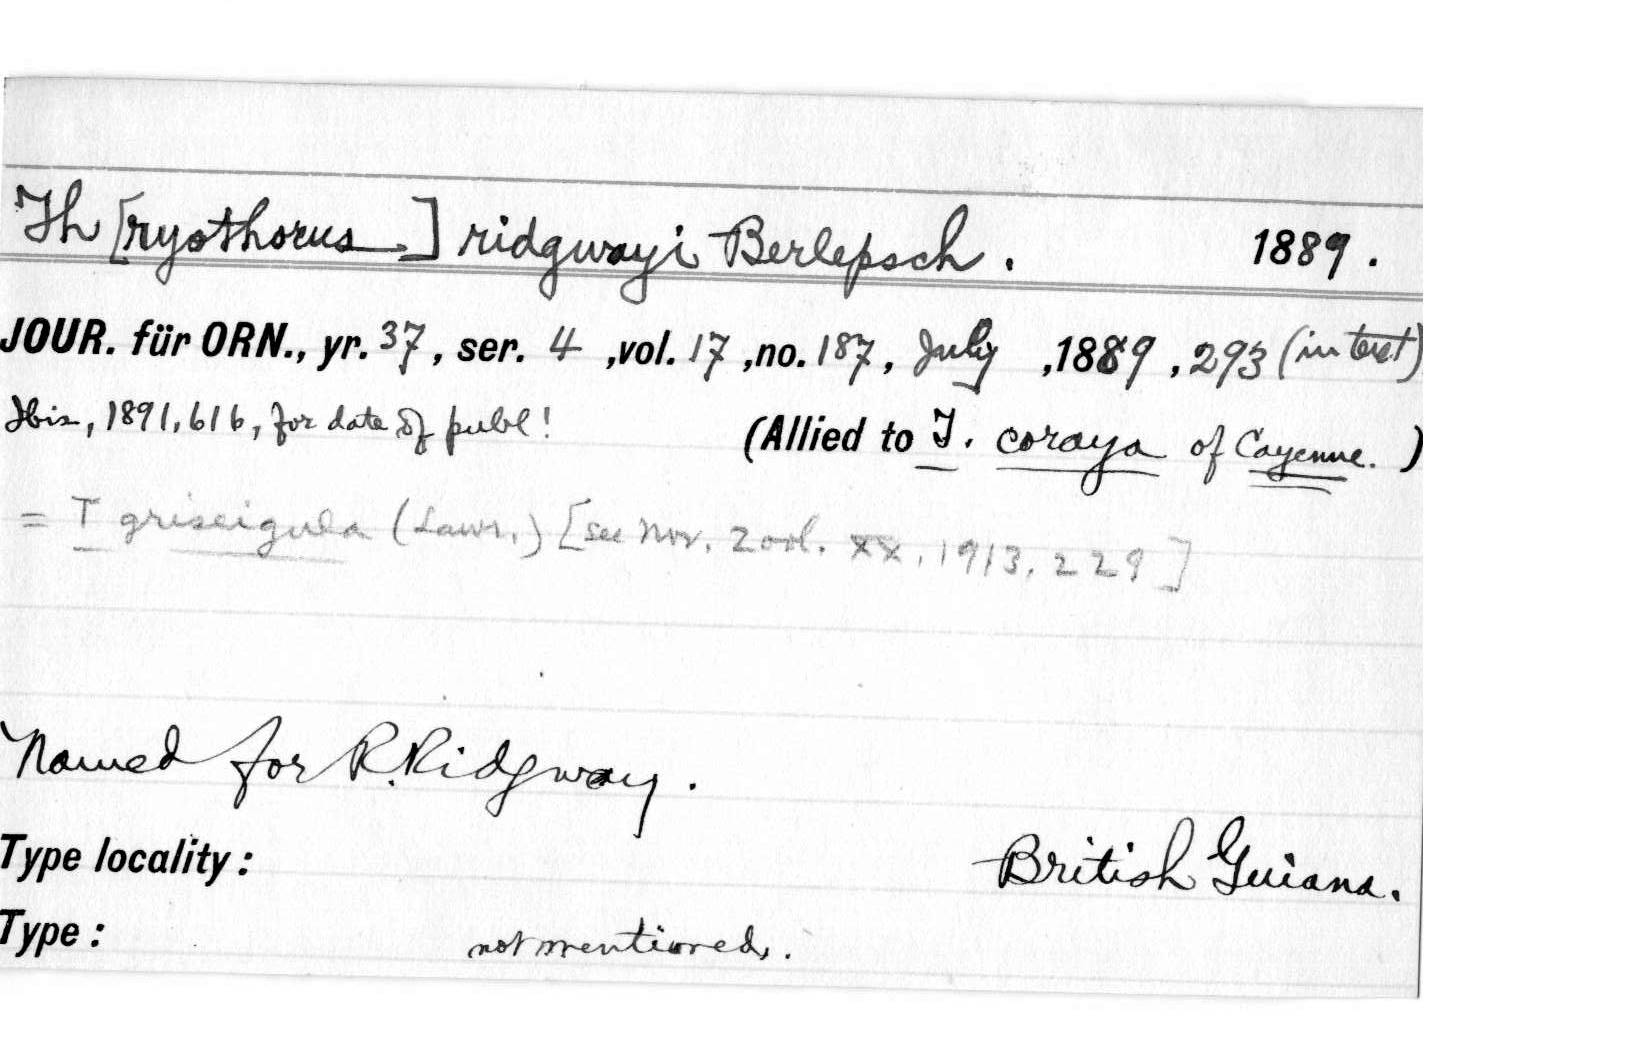 Th[ryothorus] ridgwayi Berlepsch. 1889.
JOUR. für ORN., yr. 37, ser. 4, vol. 17, no. 187, July, 1889, 293 (in text)
Ibis, 1891, 616, for date of publ! (Allied to T. coraya of Cayenne.)
= T griseigula (Lawr.) [see Nov. Zool. XX, 1913, 229]
Named for R. Ridgway.
Type locality: British Guiana.
Type: not mentioned.